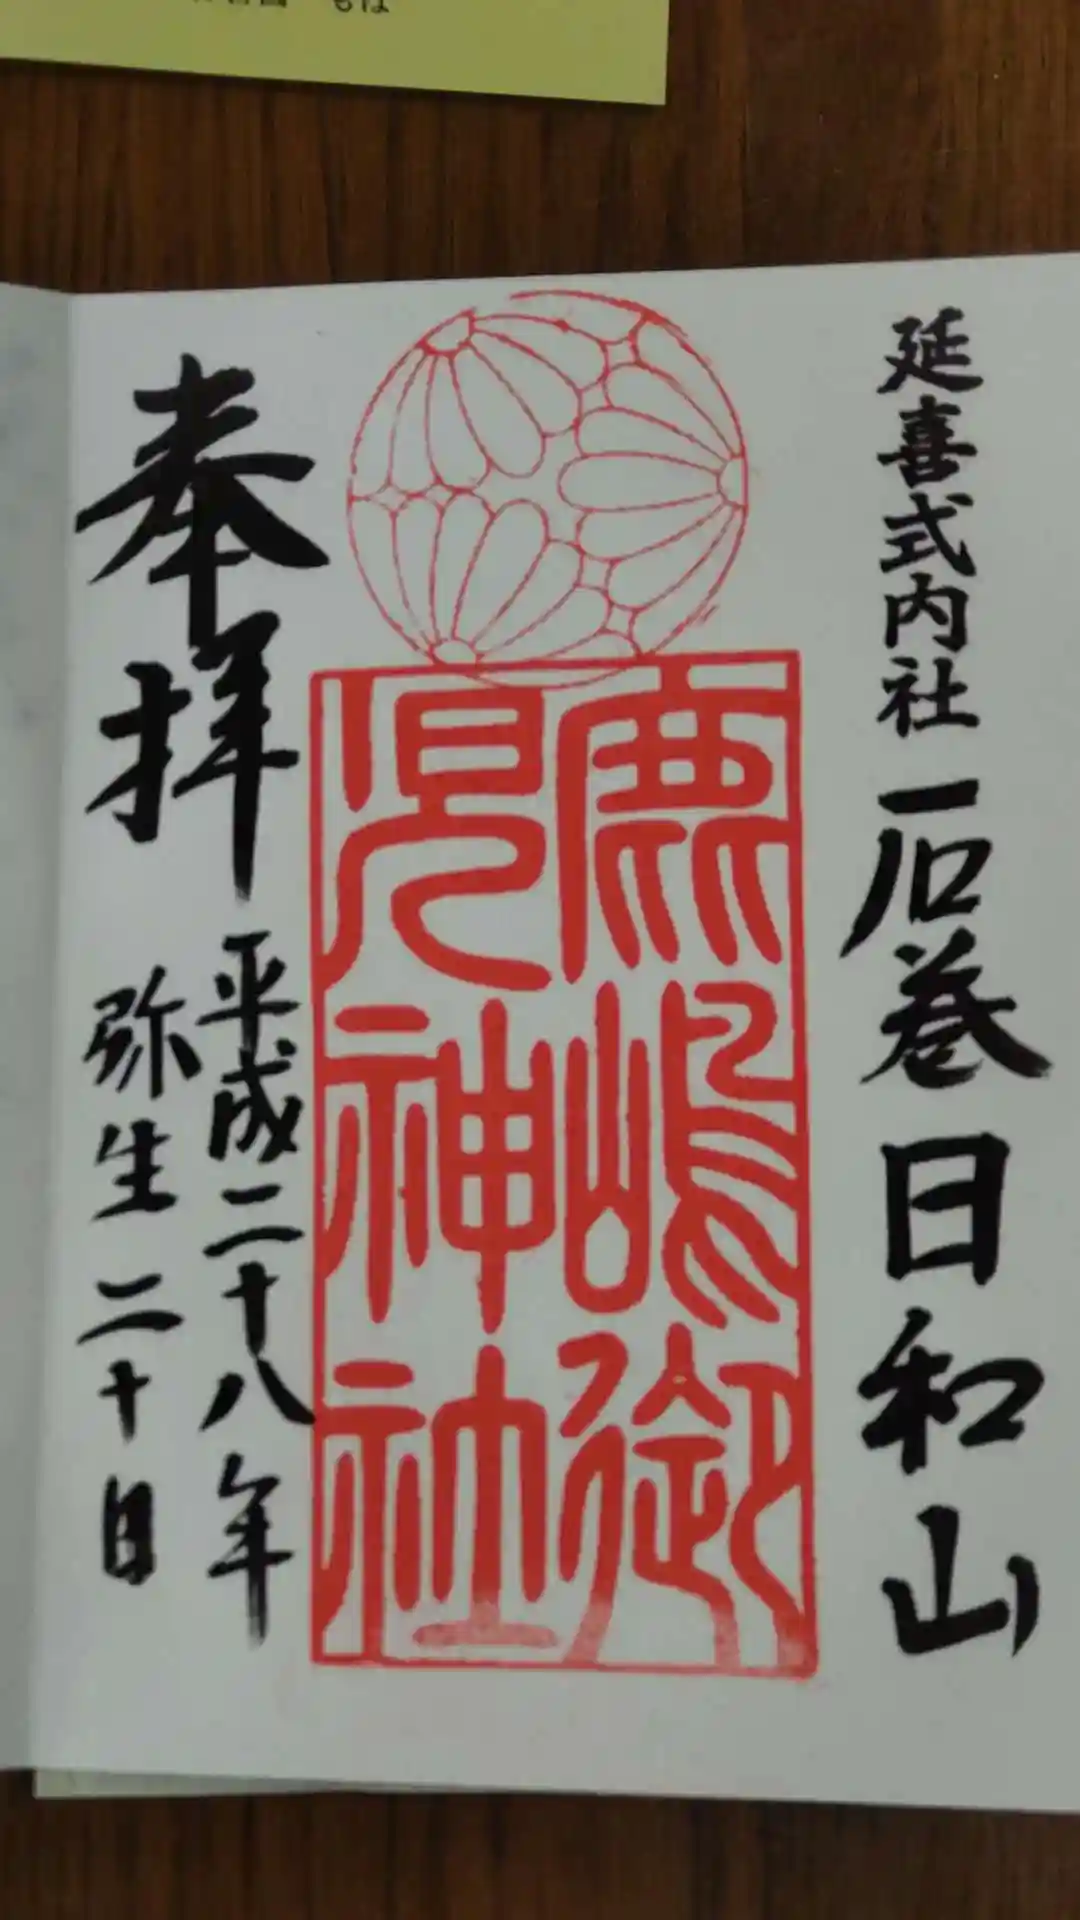 延喜式内社 石巻日和山
鹿嶋御
児神社
奉拝
平成二十八年
弥生二十日